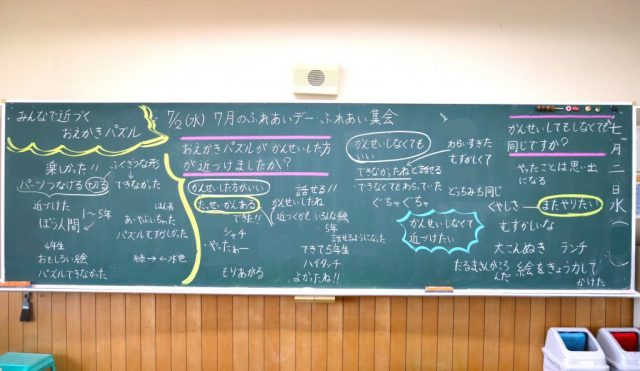 みんなで近づく
おえかきパズル
7/2(水) 7月のふれあいデー ふれあい集会
楽しかった!!
ふくざつな形
↓
できなかった
パーツつなげる 切る
近づけた
ぼう人間
1〜5年
4年生
おもしろい絵
パズルできなかった
はん長
あーやふぃちゃった
パズルむずかしかった
緑→←水色
おえかきパズルが かんせいした方
が近づけましたか?
かんせいした方がいい
たっせいかんある
できた!!
シャチ
やったねー
もりあがる
話せる!!
かんせいしたね
近づくから いろんな絵
5年
話せるようになった
できて5年生
ハイタッチ
よかたね!!
かんせいしなくても
いい
わらいすぎた
むずかしくて
できなかったねと話せる
できなくてもわらっていた
ぐちゃぐちゃ
かんせいしなくて
近づけたい
どっちみち同じ
かんせいしてもしなくても
同じですか?
やったことは思い出
になる
くやしさ → またやりたい
むずかしいな
大こんぬき ランチ
だるまさんがころ
んだ
絵をきょうかして
かけた
七月二日 水